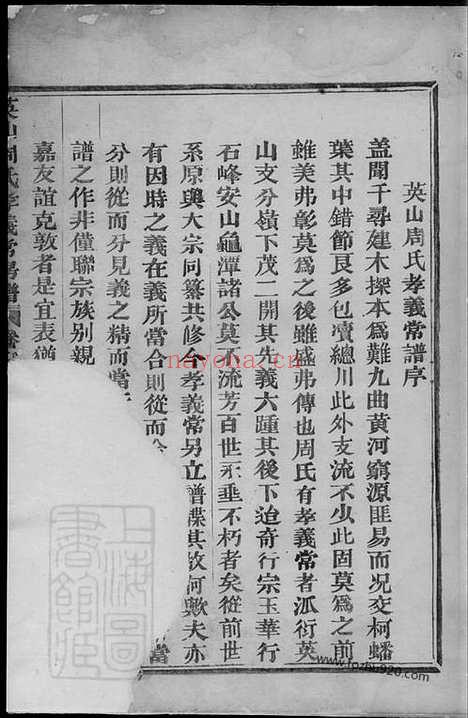 英山周氏孝義常譜序
蓋聞千尋建木探本為難九曲黃河窮源匪易而況交柯蟠
葉其中錯節良多包瀆總川此外支流不少此固莫為之前
雖美弗彰莫為之後雖盛弗傳也周氏有孝義常者派衍英
山支分嶺下茂二開其先義六踵其後下迨奇行宗玉華行
石峰安山龜潭諸公莫不流芳百世永垂不朽者矣從前世
系原與大宗同纂共修今孝義常另立譜牒其故何歟夫亦
有因時之義在義所當合則從而合 當
分則從而分見義之精而當
譜之作非僅聯宗族別親
嘉友誼克敦者是宜表
英山周氏孝義常房譜
上海圖書館藏
nayona.cn
www.fozhu920.com